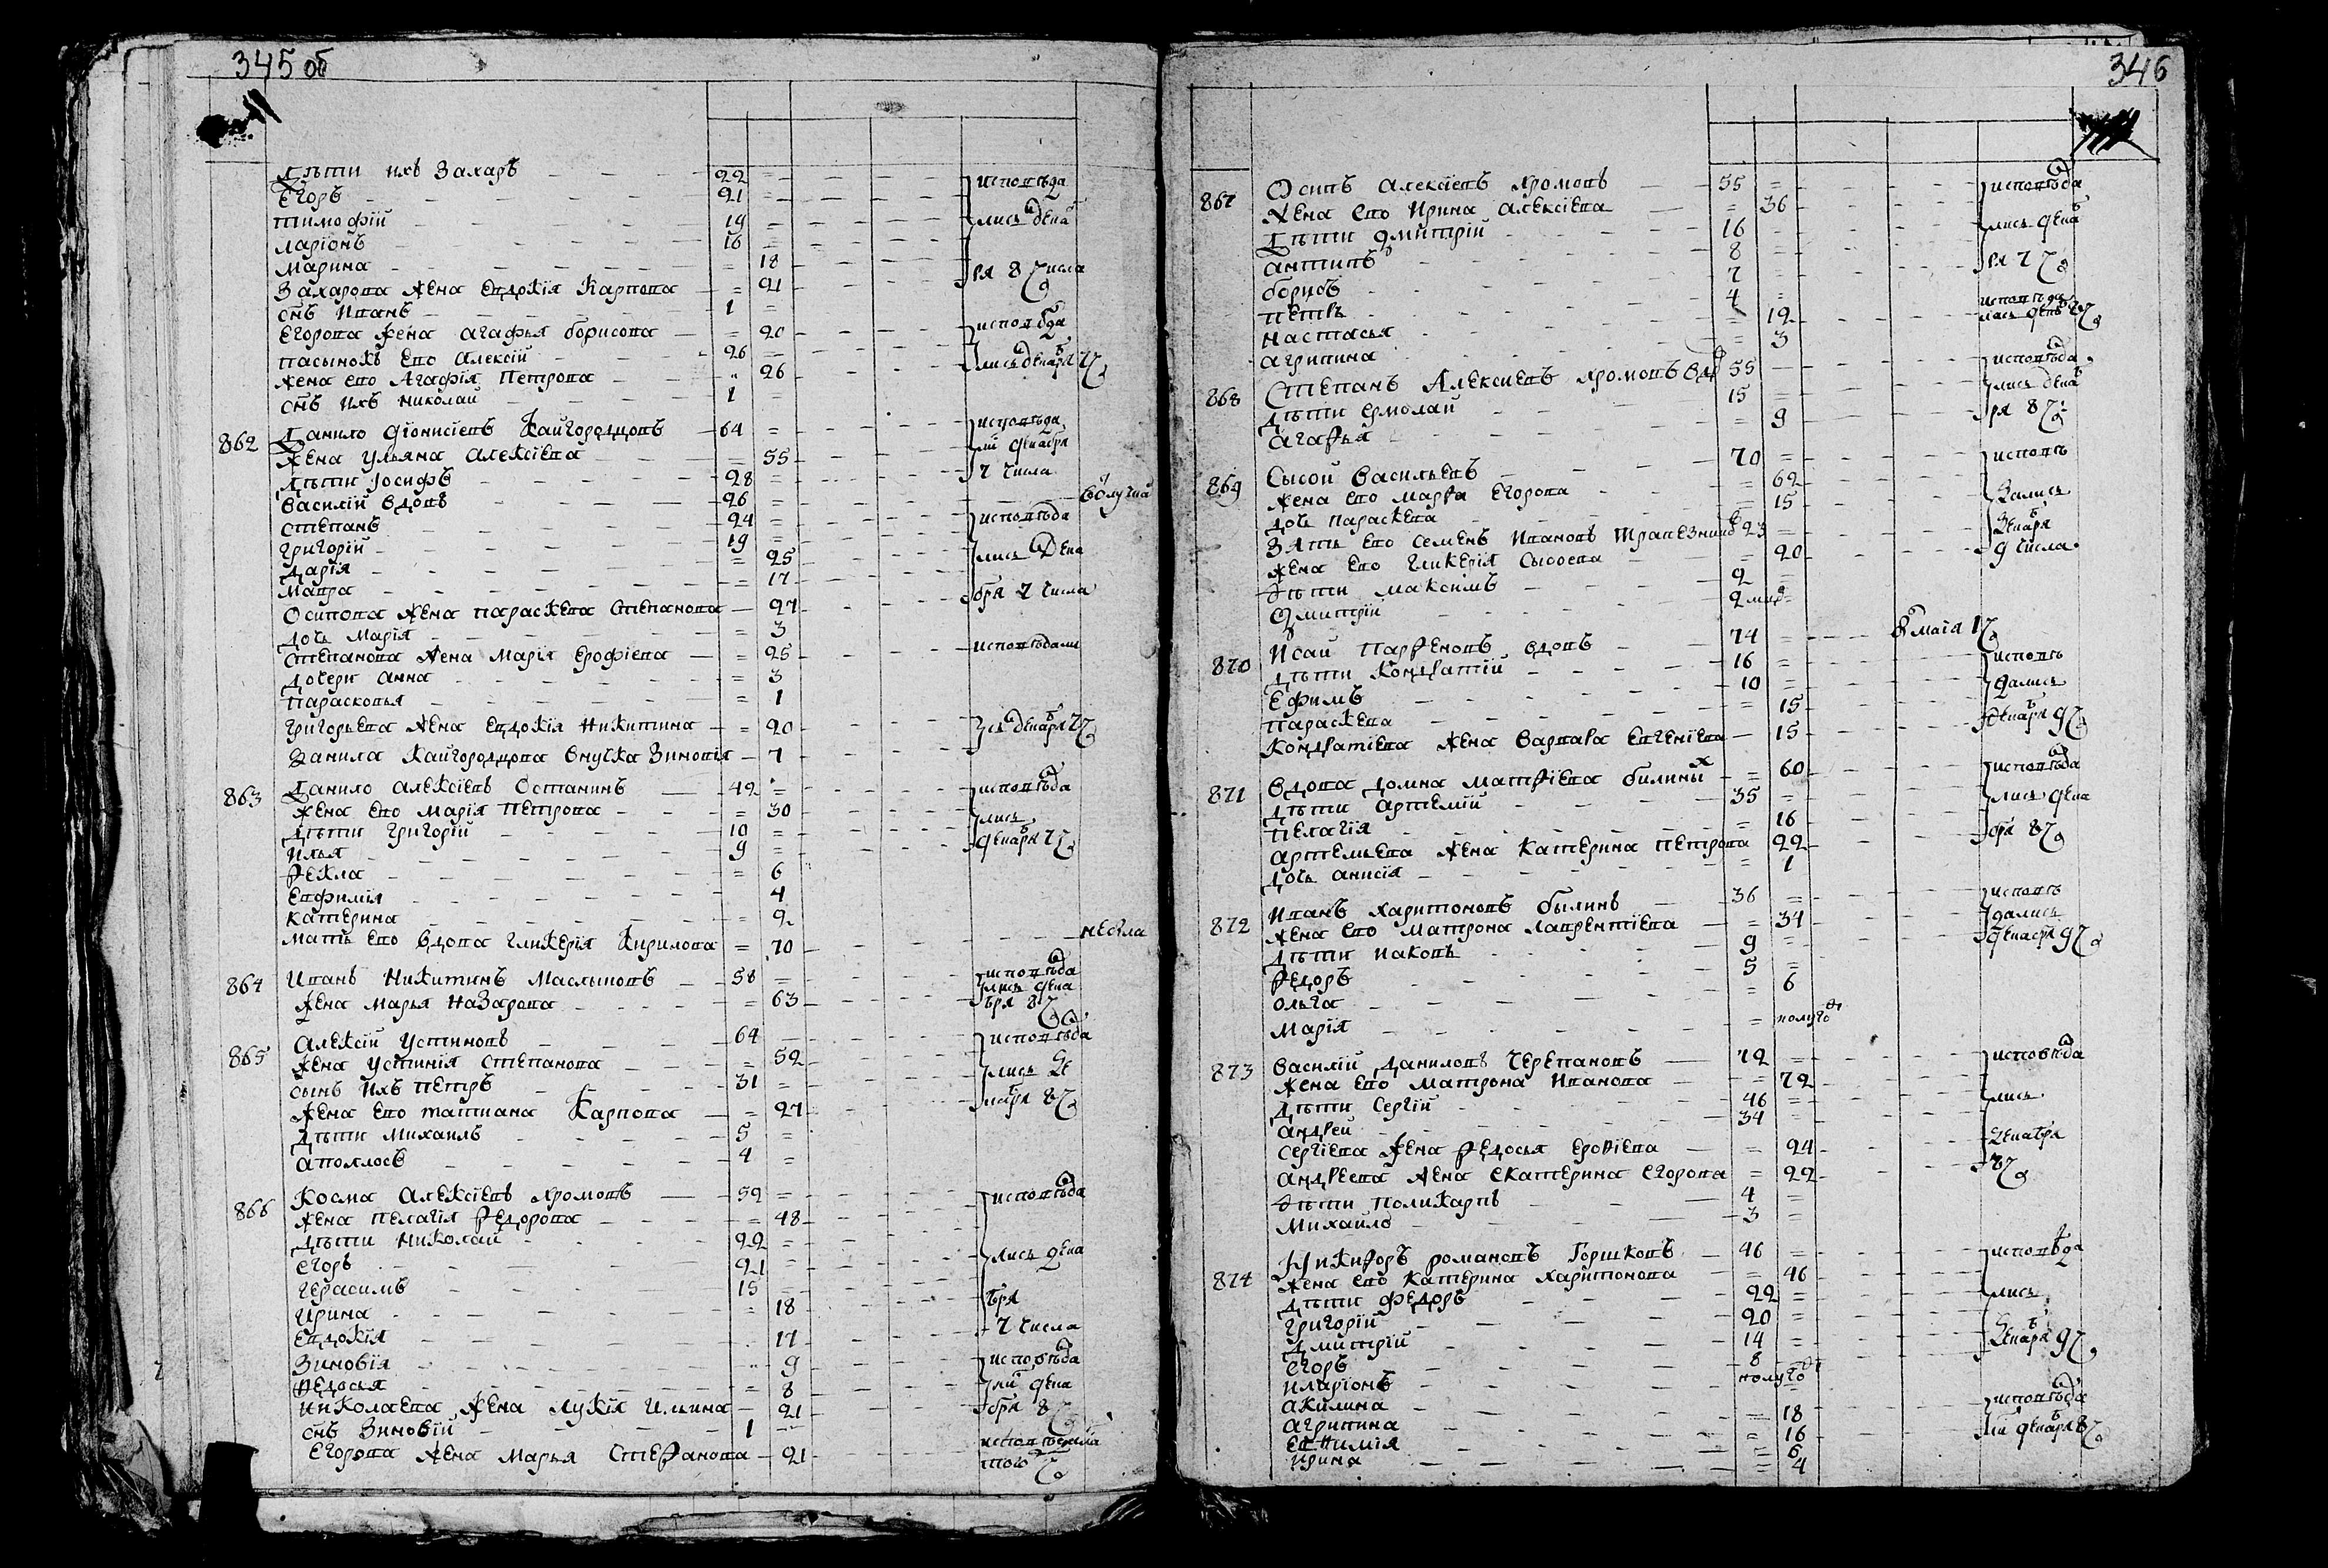 345 об
Дѣти ихъ Захаръ 22 = исповѣда
Егоръ 21 =
Тимофій 19 = лись декаб
Ларіонъ 16 =
Марина = 18
Захарова жена Евдокія Карпова = 21 ря 8 числа
снъ Иванъ 1 =
Егорова жена Агафья Борисова = 20 исповѣда
пасынокъ ево Алексій 26 =
жена ево Агафія Петрова " 26 лись декабря 7 ч
снъ ихъ Николай 1 =
862 Данило Діонисіевъ Кайгородцовъ 64 = исповѣда
жена Ульяна Алексіева = 55 ли декабря
дѣти Іосифъ 28 = 7 числа
Василій вдовъ 26
Степанъ 24 = исповѣда
Григорій 19 =
Дарія = 25 лись дека
Мавра = 17
Осипова жена Параскева Степанова = 27 бря 7 числа
дочь Марія = 3
Степанова жена Марія Ерофіева = 25 исповѣдали
дочери Анна = 3
Парасковья = 1
Григорьева жена Евдокія Никитина = 20 сь декабря 7 ч
Данила Кайгородцова внучка Зиновія 7
863 Данило Алексіевъ Останинъ 42 = исповѣда
жена ево Марія Петрова = 30 лись
дѣти Григорій 10 = декабря 7 ч
Илья 9 =
Fекла = 6
Евфимія 4
Катерина = 2
мать ево вдова Гликерія Кирилова = 70 не была
864 Иванъ Никитинъ Маслыховъ 58 = исповѣда
жена Марья Назарова = 63 лись дека
бря 8 ч
865 Алексій Устиновъ 64 исповѣда
жена Устинія Степанова = 52
сынъ ихъ Петръ 31 = лись де
жена ево Татиана Карпова = 27 кабря 8 ч
дѣти Михаилъ 5 =
Аполлосъ 4 =
866 Косма Алексіевъ Хромовъ 52 = исповѣда
жена Пелагія Fедорова = 48
дѣти Николай 22 =
Егоръ 21 лись дека
Герасимъ 15
Ирина = 18 бря
Евдокія 17 7 числа
Зиновія 9 исповѣда
Fедосья = 8 ли дека
Николаева жена Лукія Ильина 21 бря 8 ч
снъ Зиновій 1
Егорова жена Марья Стеfанова 21 того ч
346
867 Осипъ Алексіевъ Хромовъ 55 = исповѣда
жена ево Ирина Алексіева = 36
дѣти Дмитрій 16 лись декаб
Антипъ 8
Борисъ 7 = ря 7 ч
Петръ 4 =
Настасья 12
Агрипина = 3
868 Степанъ Алексіевъ Хромовъ вд 55 исповѣда
дѣти Ермолай 15 = лись декаб
Агаfья 9 ря 8 ч
869 Сысой Васильевъ 70 = исповѣ
жена ево Марfа Егорова = 62
дочь Параскева = 15 дались
зять ево Семенъ Ивановъ Трапезник 23 = декабря
жена ево Гликерія Сысоева 20 9 числа
дѣти Максимъ 2 =
Дмитрій 2 =
870 Исай Парfеновъ вдовъ 74 = мая 1 ч
дѣти Кондратій 16 = исповѣ
Ефимъ 10 = дались
Параскева = 15 декабря 9 ч
Кондратіева жена Варвара Евгеніева 15
871 вдова Домна Матfіева Билиных = 60 исповѣда
дѣти Артемій 35 = лись дека
Пелагія = 16
Артемиева жена Катерина Петрова 22 бря 8 ч
дочь Анисія = 1
872 Иванъ Харитоновъ Былинъ 36 = исповѣ
жена ево Матрона Лаврентіева = 34 дались
дѣти Иаковъ 9 = декабря 9 ч
Fедоръ 5 =
Ольга = 6
Марія = полуго
873 Василій Даниловъ Черепановъ 72 = исповѣда
жена ево Матрона Иванова = 72
дѣти Сергій 46 = лись
Андрей 34 =
Сергіева жена Fедосья Ероfіева = 24 декабря
Андреева жена Екатерина Егорова = 22 8 ч
дѣти Поликарпъ 4 =
Михайло 3 =
874 Никиfоръ Романовъ Горшковъ 46 = исповѣда
жена ево Катерина Харитонова = 46
дѣти Федоръ 22 = лись
Григорій 20 =
Дмитрій 14 = декабря 9 ч
Егоръ 8
Иларіонъ полуго
Акилина = 18 исповѣда
Агрипина = 16 ли декабря 8 ч
Евfимія = 6
Ирина = 4